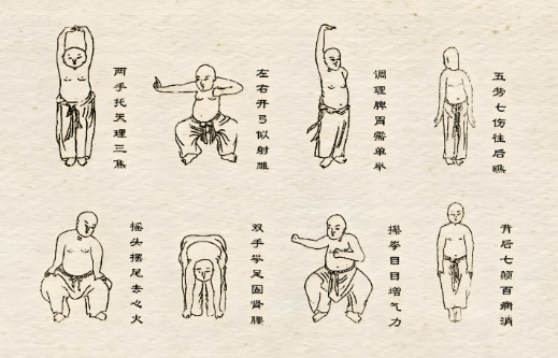 两手托天理三焦
左右开弓似射雕
调理脾胃需单举
五劳七伤往后瞧
摇头摆尾去心火
双手攀足固肾腰
攒拳目目增气力
背后七颠百病消